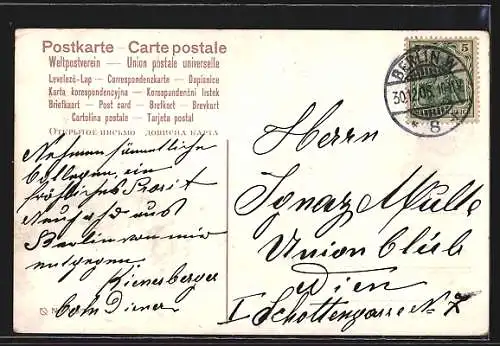 Postkarte - Carte postale
Weltpostverein — Union postale universelle
Levelező-Lap — Correspondenzkarte — Dopisnice
Karta korespondencyjna — Korespondentní lístek
Briefkaart — Post card — Brefkort — Brevkort
Cartolina postale — Tarjeta postal
ОТКРЫТОЕ ПИСЬМО
BERLIN W.
30.12.06
* 8
5
Nehmen sämmtliche
Collegen ein
fröhliches Prosit
Neujahr aus
Berlin von mir
entgegen
Kienesberger
Herrn
Ignaz
Union Club
Wien
I Schottengasse N. 7